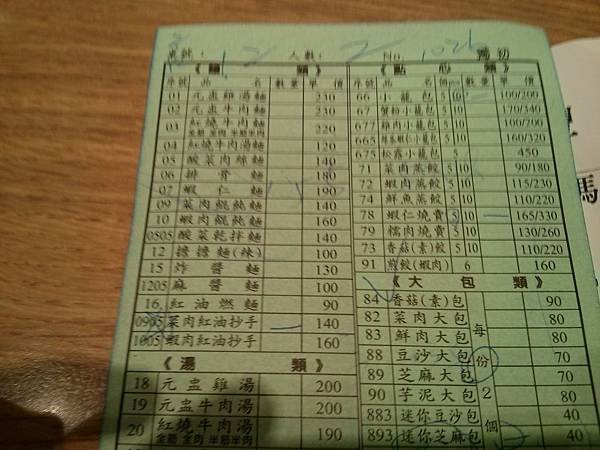 桌號： 12 人數： 2 No. 1026
《麵 類》
序號 品 名 數量 單 價
01 元盅雞湯麵 230
02 元盅牛肉麵 230
03 紅燒牛肉麵 220
全筋 全肉 半筋半肉
04 紅燒牛肉湯麵 120
05 酸菜肉絲麵 140
06 排骨麵 180
07 蝦仁麵 190
09 菜肉餛飩麵 140
10 蝦肉餛飩麵 160
0505 酸菜乾拌麵 140
12 擔擔麵(辣) 100
15 炸醬麵 130
1205 麻醬麵 100
16 紅油燃麵 90
0905 菜肉紅油抄手 140
1005 蝦肉紅油抄手 160
《湯 類》
18 元盅雞湯 200
19 元盅牛肉湯 200
20 紅燒牛肉湯 190
全筋 全肉 半筋半肉
《點 心 類》
序號 品 名 個 數量 單 價
66 小籠包 5 10 100/200
67 蟹粉小籠包 5 10 170/340
677 雞肉小籠包 5 10 100/200
665 小籠包 5 10 160/320
675 松露小籠包 5 450
71 菜肉蒸餃 5 10 90/180
72 蝦肉蒸餃 5 10 115/230
74 鮮魚蒸餃 5 10 110/220
78 蝦仁燒賣 5 10 165/330
79 糯肉燒賣 5 10 130/260
73 香菇(素)餃 5 10 110/220
91 煎餃(蝦肉) 6 160
《大 包 類》
84 香菇(素)包 90
82 菜肉大包 80
83 鮮肉大包 80
88 豆沙大包 70
89 芝麻大包 70
90 芋泥大包 80
883 迷你豆沙包 40
893 迷你芝麻包 40
每份2個
馬